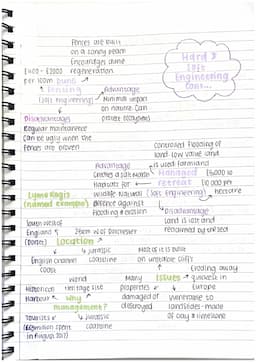 Hard &
Soft
Engineering
Cont...
Fences are built
on a sandy beach
Encourages dune
regeneration.
£400 - £2000
per 100m
Dune
Fencing
(soft engineering)
Advantage
Minimal impact
on nature. Can
protect ecosystems
Disadvantages
Regular maintenance
Can be ugly when the
fences are broken
Controlled flooding of
low-low value land
is used farmland
Managed
retreat
(soft engineering)
£5000 to
£10 000 per
hectare
Advantage
Creates a salt marsh
Habitats for
wildlife. Natural
defence against
flooding & erosion
Disadvantage
Land is lost and
reclaimed by the sea
Lyme Regis
(named example)
South West of
England
(Dorset)
25km W of Dorchester
Location
English channel
coast
Jurassic
coastline
Most of it is built
on unstable cliffs
Issues
Eroding away
quickest in
Europe
Many
properties
damaged or
destroyed
Vulnerable to
landslides - made
of clay & limestone
World
Heritage site
Historical
Harbour
Why
management?
Tourists
in August 2017)
Jurassic
coastline